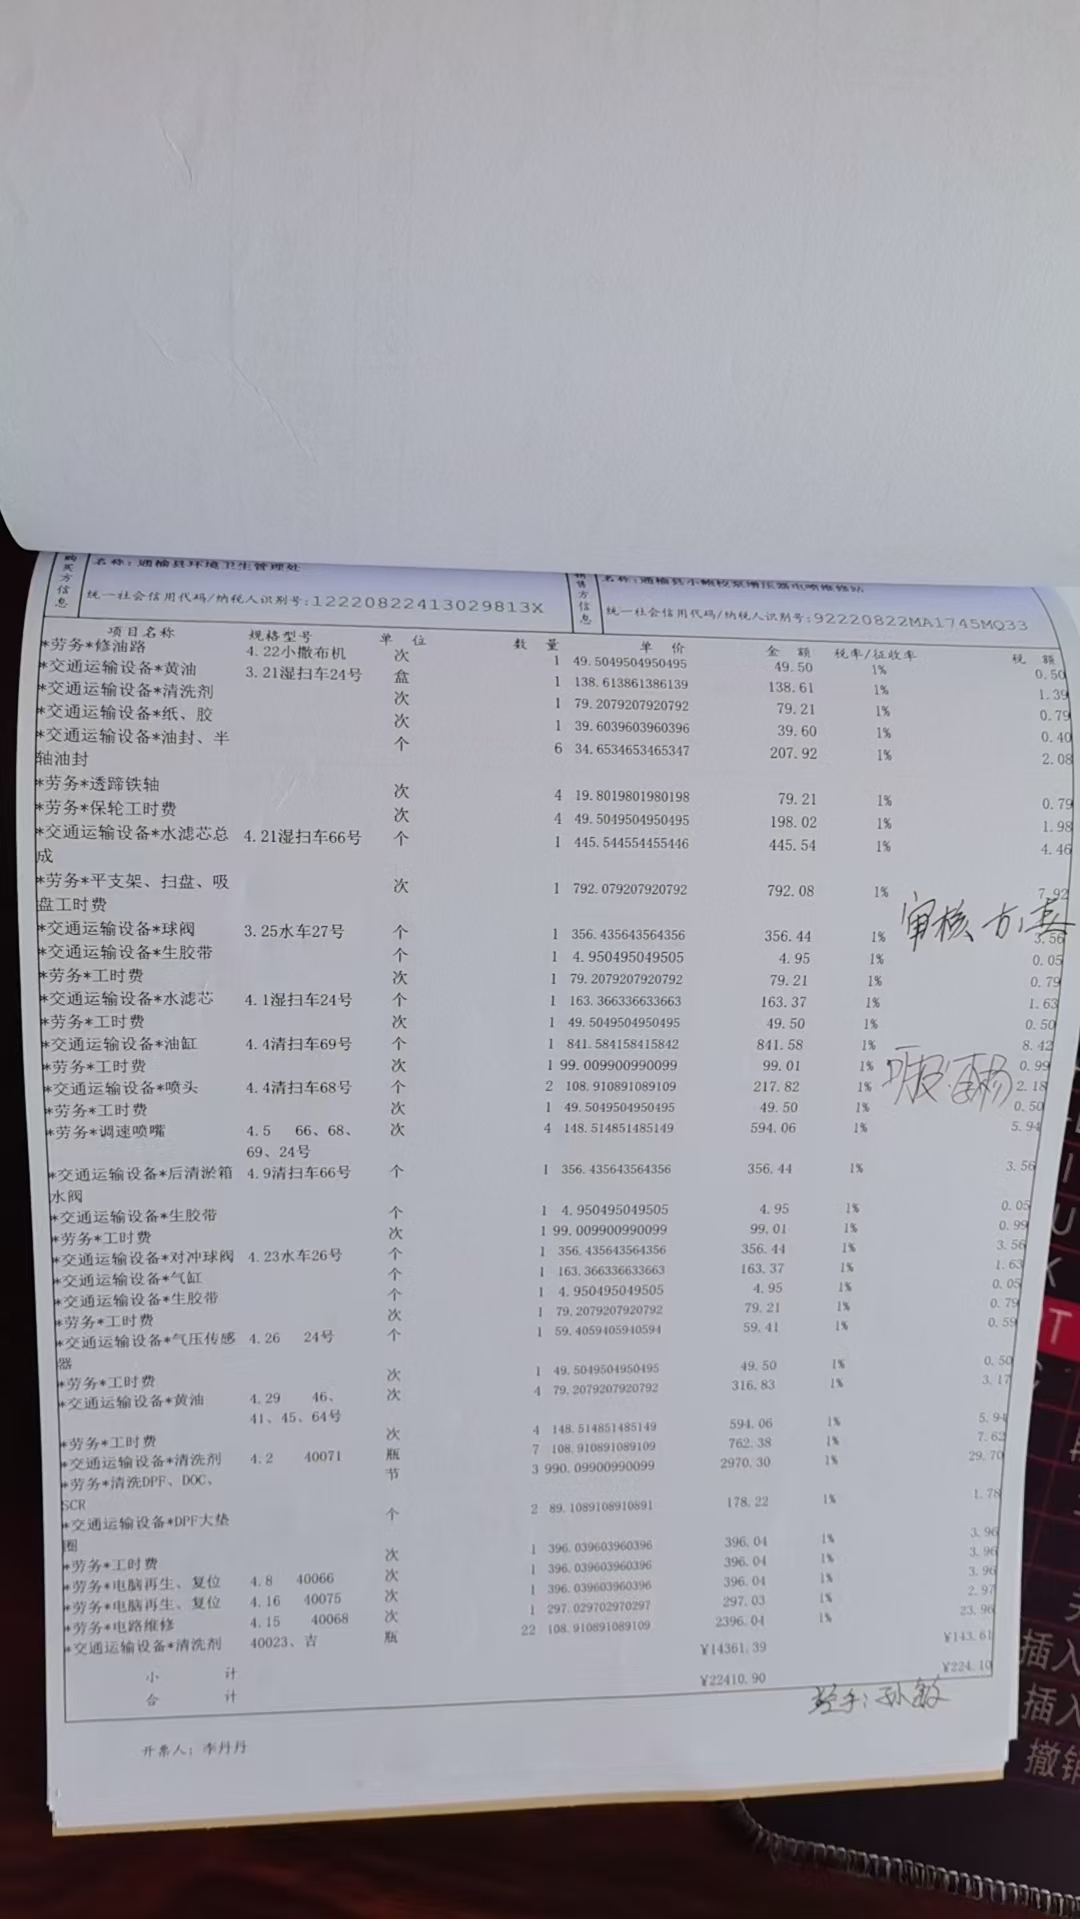 购买方信息
名称：通榆县环境卫生管理处
统一社会信用代码/纳税人识别号：12220822413029813X
售方信息
统一社会信用代码/纳税人识别号：92220822MA1745MQ33
项目名称 规格型号 单 位 数 量 单 价 金 额 税率/征收率 税 额
*劳务*修油路 4.22小撒布机 次 1 49.5049504950495 49.50 1% 0.50
*交通运输设备*黄油 3.21湿扫车24号 盒 1 138.613861386139 138.61 1% 1.39
*交通运输设备*清洗剂 次 1 79.2079207920792 79.21 1% 0.79
*交通运输设备*纸、胶 次 1 39.6039603960396 39.60 1% 0.40
*交通运输设备*油封、半 个 6 34.6534653465347 207.92 1% 2.08
轴油封
*劳务*透蹄铁轴 次 4 19.8019801980198 79.21 1% 0.79
*劳务*保轮工时费 次 4 49.5049504950495 198.02 1% 1.98
*交通运输设备*水滤芯总 4.21湿扫车66号 个 1 445.544554455446 445.54 1% 4.46
成
*劳务*平支架、扫盘、吸 次 1 792.079207920792 792.08 1% 7.92
盘工时费
审核
*交通运输设备*球阀 3.25水车27号 个 1 356.435643564356 356.44 1% 3.56
*交通运输设备*生胶带 个 1 4.950495049505 4.95 1% 0.05
*劳务*工时费 次 1 79.2079207920792 79.21 1% 0.79
*交通运输设备*水滤芯 4.1湿扫车24号 个 1 163.366336633663 163.37 1% 1.63
*劳务*工时费 次 1 49.5049504950495 49.50 1% 0.50
*交通运输设备*油缸 4.4清扫车69号 个 1 841.584158415842 841.58 1% 8.42
*劳务*工时费 次 1 99.009900990099 99.01 1% 0.99
*交通运输设备*喷头 4.4清扫车68号 个 2 108.910891089109 217.82 1% 2.18
*劳务*工时费 次 1 49.5049504950495 49.50 1% 0.50
*劳务*调速喷嘴 4.5 66、68、 次 4 148.514851485149 594.06 1% 5.94
69、24号
*交通运输设备*后清淤箱 4.9清扫车66号 个 1 356.435643564356 356.44 1% 3.56
水阀
*交通运输设备*生胶带 个 1 4.950495049505 4.95 1% 0.05
*劳务*工时费 次 1 99.009900990099 99.01 1% 0.99
*交通运输设备*对冲球阀 4.23水车26号 个 1 356.435643564356 356.44 1% 3.56
*交通运输设备*气缸 个 1 163.366336633663 163.37 1% 1.63
*交通运输设备*生胶带 个 1 4.950495049505 4.95 1% 0.05
*劳务*工时费 次 1 79.2079207920792 79.21 1% 0.79
*交通运输设备*气压传感 4.26 24号 个 1 59.4059405940594 59.41 1% 0.59
器
*劳务*工时费 次 1 49.5049504950495 49.50 1% 0.50
*交通运输设备*黄油 4.29 46、 次 4 79.2079207920792 316.83 1% 3.17
41、45、64号
*劳务*工时费 次 4 148.514851485149 594.06 1% 5.94
*交通运输设备*清洗剂 4.2 40071 瓶 7 108.910891089109 762.38 1% 7.62
*劳务*清洗DPF、DOC、 节 3 990.09900990099 2970.30 1% 29.70
SCR
*交通运输设备*DPF大垫 个 2 89.1089108910891 178.22 1% 1.78
圈
*劳务*工时费 次 1 396.039603960396 396.04 1% 3.96
*劳务*电脑再生、复位 4.8 40066 次 1 396.039603960396 396.04 1% 3.96
*劳务*电脑再生、复位 4.16 40075 次 1 396.039603960396 396.04 1% 3.96
*劳务*电路维修 4.15 40068 次 1 297.029702970297 297.03 1% 2.97
*交通运输设备*清洗剂 40023、吉 瓶 22 108.910891089109 2396.04 1% 23.96
小 计 ¥14361.39 ¥143.61
合 计 ¥22410.90 ¥224.10
经手：孙敏
开票人：李丹丹
插入
插入
撤销